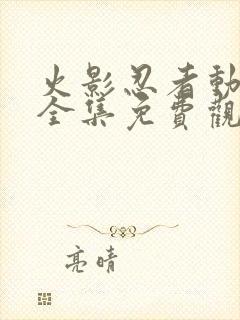 火影忍者動
全集免費觀
亮晴